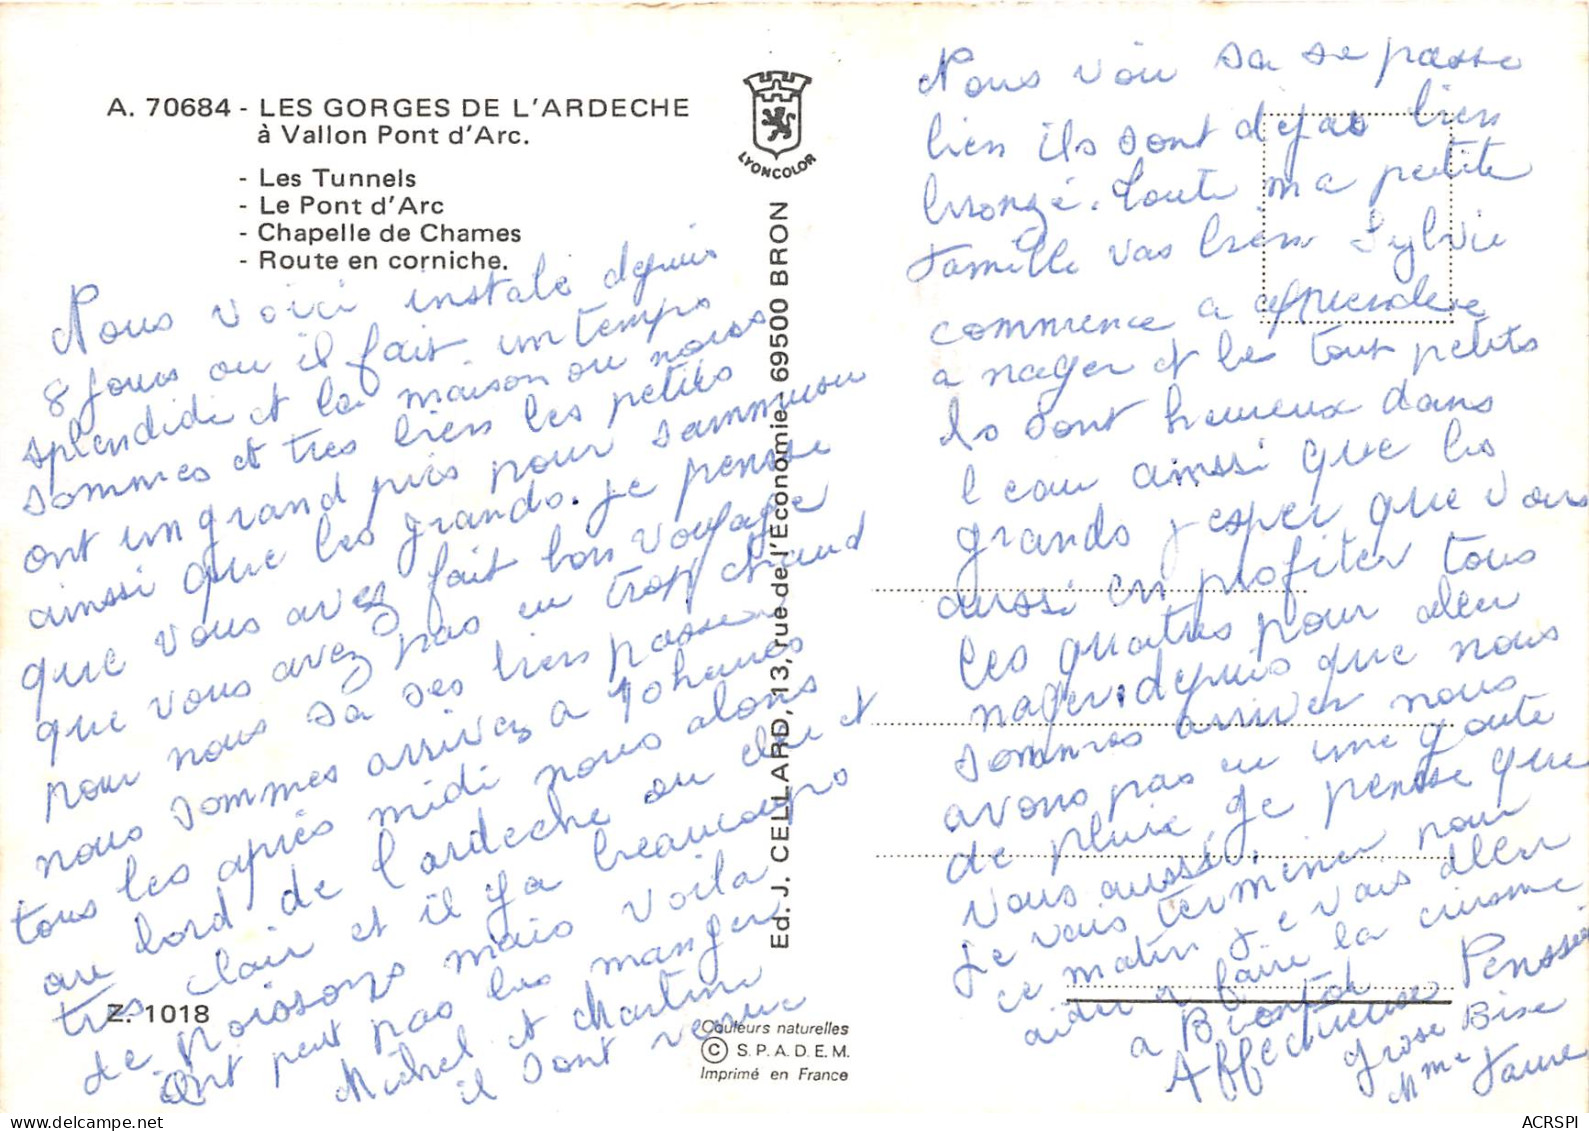 A. 70684 - LES GORGES DE L'ARDECHE
à Vallon Pont d'Arc.
- Les Tunnels
- Le Pont d'Arc
- Chapelle de Chames
- Route en corniche.
Nous voici instalé depuis
8 jours ou il fait un temps
splendide et la maison ou nous
sommes et tres bien les petits
ont un grand près pour sammuser
ainssi que les grands. je pensse
que vous avez fait bon voyage
que vous avez pas eu trop chaud
pour nous sa ses bien passer
nous sommes arrivez a 10 heures
tous les après midi nous alons
au bord de l'ardeche au eau et
très clair et il y a beaucoups
de poissons mais voila
ont peut pas les manger
Michel et Martine
il sont venue
Z. 1018
LYONCOLOR
Ed. J. CELLARD, 13, rue de l'Economie - 69500 BRON
Couleurs naturelles
© S.P.A.D.E.M.
Imprimé en France
Nous voir sa se passe
bien ils sont dejas bien
bronzé. Toute ma petite
famille vas bien Sylvie
commence a apprendere
a nager et les tout petits
ls sont heureux dans
l eau ainssi que les
grands j esper que vous
aussi en profiter tous
les quatres pour aller
nager. depuis que nous
sommes arriver nous
avons pas eu une goute
de pluie, je pensse que
vous aussi.
Je vais terminer pour
ce matin je vais aller
aider a faire la cuisine
a Bientot
Affectueuse Penssée
grosse Bise
Mme Faure
ACRSPI